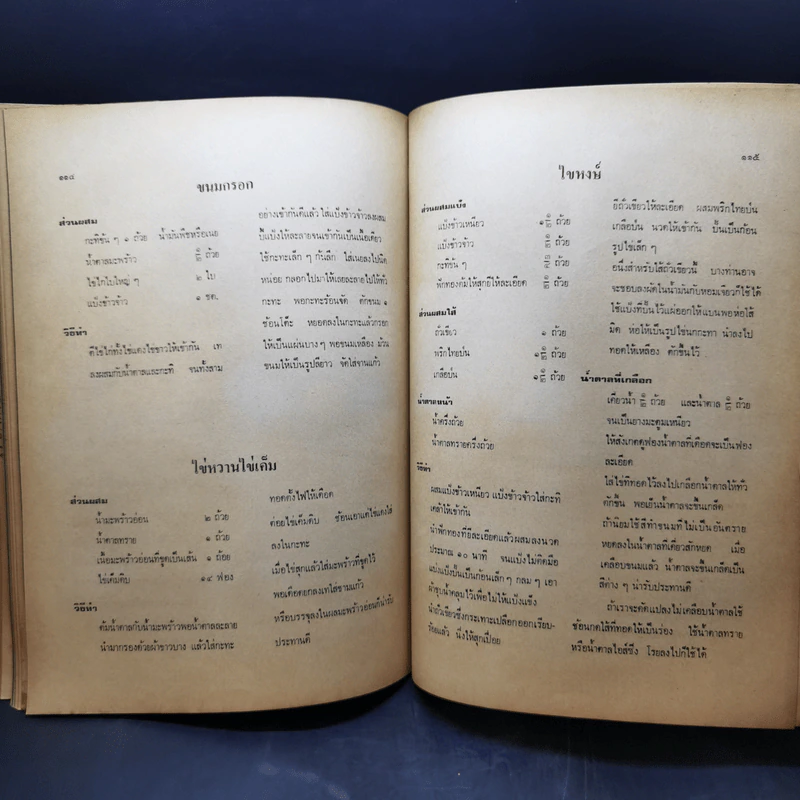 ๑๑๔
ขนมกรอก
ส่วนผสม
กะทิข้น ๆ ๑ ถ้วย น้ำมันพืชหรือเนย
น้ำตาลมะพร้าว ถ้วย
ไข่ไก่ใบใหญ่ ๆ ๒ ใบ
แป้งข้าวจ้าว ๑ ชต.
วิธีทำ
ตีไข่ไก่ทั้งไข่แดงไข่ขาวให้เข้ากัน เท
ลงผสมกับน้ำตาลและกะทิ จนทั้งสาม
อย่างเข้ากันดีแล้ว ใส่แป้งข้าวจ้าวลงผสม
ขยี้แป้งให้ละลายจนเข้ากันเป็นเนื้อเดียว
ใช้กะทะเล็ก ๆ ก้นลึก ใส่เนยลงไปนิด
หน่อย กลอกไปมาให้เลยละลายไปให้ทั่ว
กะทะ พอกะทะร้อนจัด ตักขนม ๑
ช้อนโต๊ะ หยอดลงในกะทะแล้วกรอก
ให้เป็นแผ่นบาง ๆ พอขนมเหลือง ม้วน
ขนมให้เป็นรูปลียาว จัดใส่จานแก้ว
ไข่หวานไข่เค็ม
ส่วนผสม
น้ำมะพร้าวอ่อน ๒ ถ้วย
น้ำตาลทราย ๑ ถ้วย
เนื้อมะพร้าวอ่อนที่ขูดเป็นเส้น ๑ ถ้วย
ไข่เค็มดิบ ๑๔ ฟอง
วิธีทำ
ต้มน้ำตาลกับน้ำมะพร้าวพอน้ำตาลละลาย
นำมากรองด้วยผ้าขาวบาง แล้วใส่กะทะ
ทอดตั้งไฟให้เดือด
ต่อยไข่เค็มดิบ ช้อนเอาแต่ไข่แดงใส่
ลงในกะทะ
เมื่อไข่สุกแล้วใส่มะพร้าวที่ขูดไว้
พอเดือดยกลงเทใส่ชามแก้ว
หรือบรรจุลงในผลมะพร้าวอ่อนก็น่ารับ
ประทานดี
๑๑๕
ไข่หงษ์
ส่วนผสมแป้ง
แป้งข้าวเหนียว ถ้วย
แป้งข้าวจ้าว ถ้วย
กะทิข้น ๆ ถ้วย
ฟักทองต้มให้สุกยีให้ละเอียด ถ้วย
ส่วนผสมไส้
ถั่วเขียว ๑ ถ้วย
พริกไทยป่น ถ้วย
เกลือป่น ถ้วย
น้ำตาลหน้า
น้ำครึ่งถ้วย
น้ำตาลทรายครึ่งถ้วย
วิธีทำ
ผสมแป้งข้าวเหนียว แป้งข้าวจ้าวใส่กะทิ
เคล้าให้เข้ากัน
นำฟักทองที่ยีละเอียดแล้วผสมลงนวด
ประมาณ ๑๐ นาที จนแป้งไม่ติดมือ
แบ่งแป้งปั้นเป็นก้อนเล็ก ๆ กลม ๆ เอา
ผ้าชุบน้ำคลุมไว้เพื่อไม่ให้แป้งแข็ง
นำถั่วเขียวซึ่งกระเทาะเปลือกออกเรียบ-
ร้อยแล้ว นึ่งให้สุกเปื่อย
ยีถั่วเขียวให้ละเอียด ผสมพริกไทยป่น
เกลือป่น นวดให้เข้ากัน ปั้นเป็นก้อน
รูปไข่เล็ก ๆ
อนึ่งสำหรับไส้ถั่วเขียวนี้ บางท่านอาจ
จะชอบลงผัดในน้ำมันกับหอมเจียวก็ใช้ได้
ใช้แป้งที่ปั้นไว้แผ่ออกให้แบนพอห่อไส้
มิด ห่อให้เป็นรูปไข่นกกะทา นำลงไป
ทอดให้เหลือง ตักขึ้นไว้
น้ำตาลที่เกลือก
เคี่ยวน้ำ ถ้วย และน้ำตาล ถ้วย
จนเป็นยางมะตูมเหนียว
ให้สังเกตดูฟองน้ำตาลที่เดือดจะเป็นฟอง
ละเอียด
ใส่ไข่ที่ทอดไว้ลงไปเกลือกน้ำตาลให้ทั่ว
ตักขึ้น พอเย็นน้ำตาลจะขึ้นเกล็ด
ถ้านิยมใช้สีทำขนมที่ไม่เป็นอันตราย
หยดลงในน้ำตาลที่เคี่ยวสักหยด เมื่อ
เคลือบขนมแล้ว น้ำตาลจะขึ้นเกล็ดเป็น
สีต่าง ๆ น่ารับประทานดี
ถ้าเราจะดัดแปลงไม่เคลือบน้ำตาลใช้
ช้อนกดไส้ที่ทอดให้เป็นร่อง ใช้น้ำตาลทราย
หรือน้ำตาลไอส์ซิ่ง โรยลงไปก็ใช้ได้